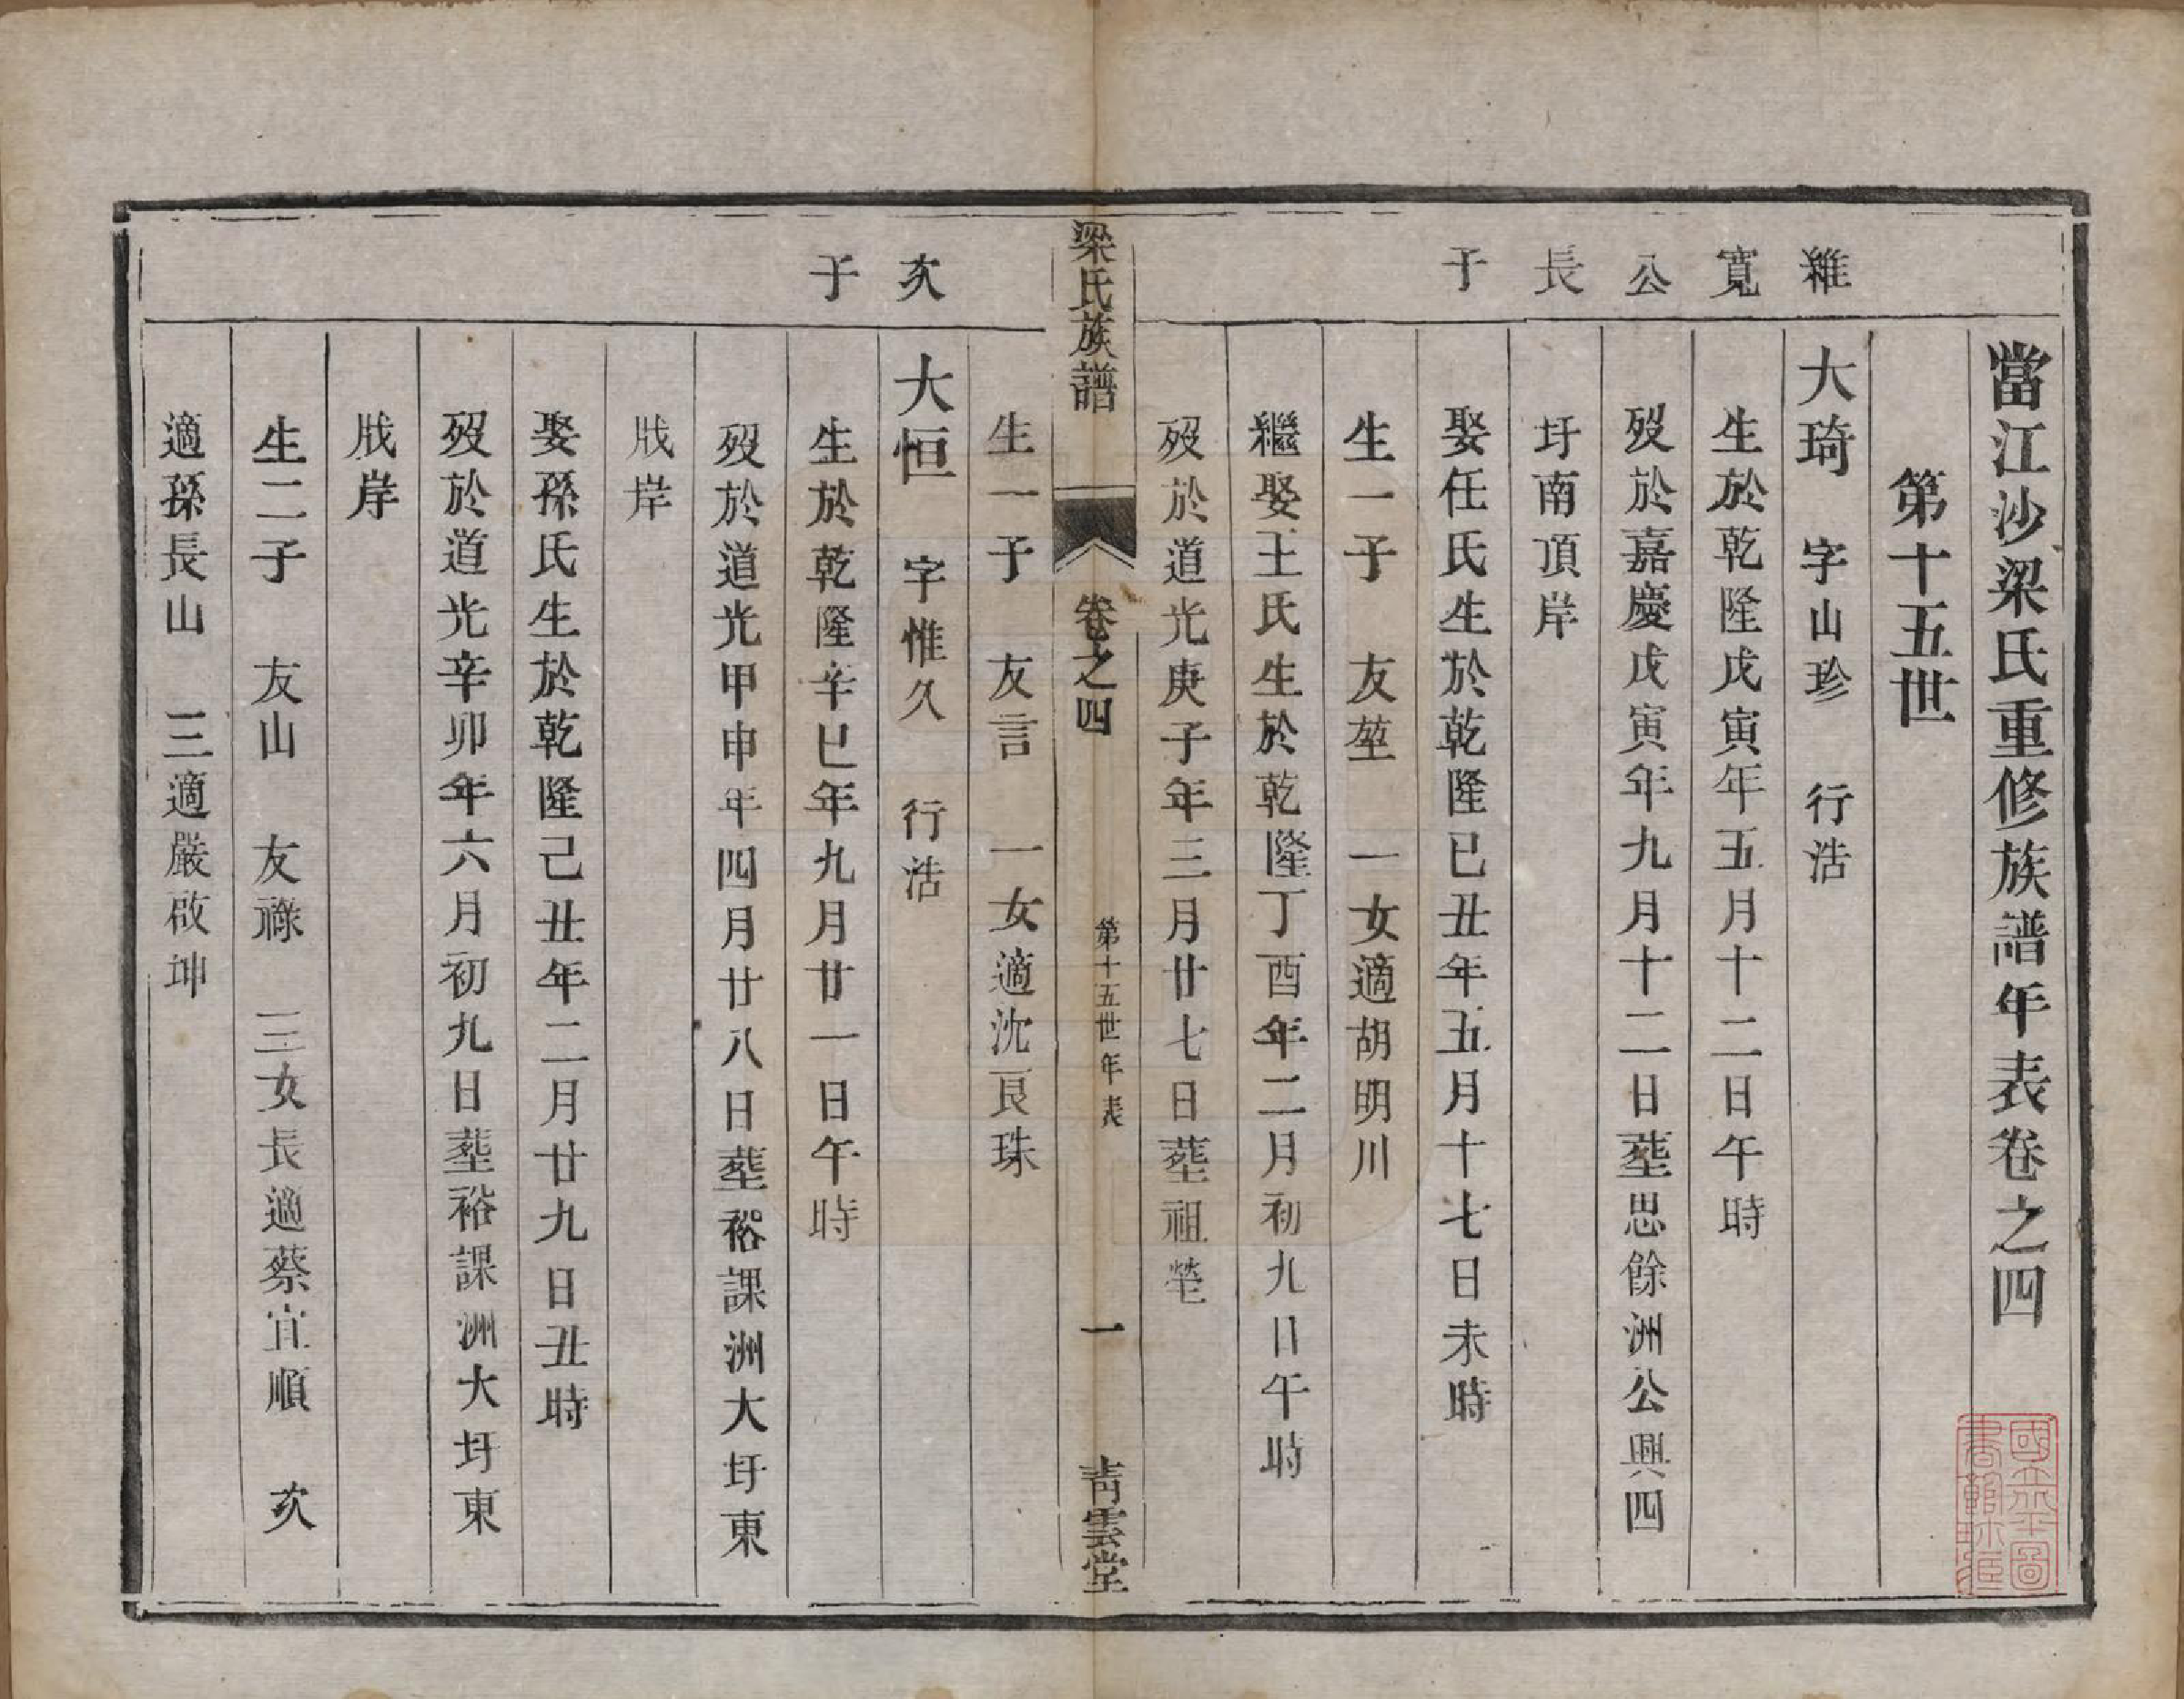 當江沙梁氏重修族譜年表卷之四
第十五世
維寬公長子
大琦 字山珍 行浩
生於乾隆戊寅年五月十二日午時
歿於嘉慶戊寅年九月十二日塟思餘洲公興四
圩南頂岸
娶任氏生於乾隆已丑年五月十七日未時
生一子 友堃 一女適胡明川
繼娶王氏生於乾隆丁酉年二月初九日午時
歿於道光庚子年三月廿七日塟祖塋
梁氏族譜 卷之四 第十五世年表 一 靑雲堂
生一子 友言 一女適沈良珠
次子
大恒 字惟久 行浩
生於乾隆辛巳年九月廿一日午時
歿於道光甲申年四月廿八日塟裕課洲大圩東
戕岸
娶孫氏生於乾隆己丑年二月廿九日丑時
歿於道光辛卯年六月初九日塟裕課洲大圩東
戕岸
生二子 友山 友祿 三女長適蔡宜順 次
適孫長山 三適嚴啟坤